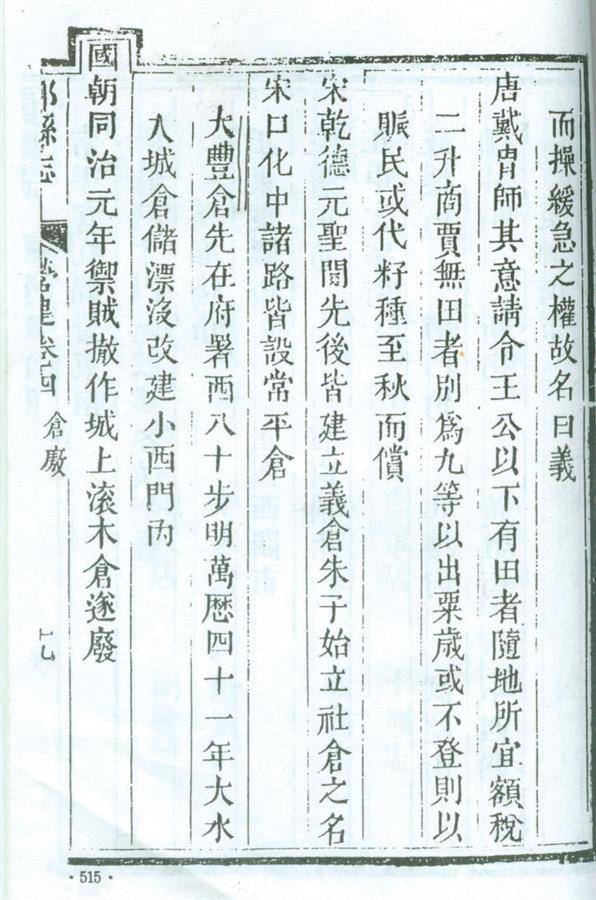 而操緩急之權故名曰義
唐戴胄師其意請令王公以下有田者隨地所宜額稅
二升商賈無田者別為九等以出粟歲或不登則以
賑民或代籽種至秋而償
宋乾德元聖間先後皆建立義倉朱子始立社倉之名
宋口化中諸路皆設常平倉
大豐倉先在府署西八十步明萬曆四十一年大水
入城倉儲漂沒改建小西門內
國朝同治元年禦賊撤作城上滾木倉遂廢
縣志
營建卷四
倉廒
·515·